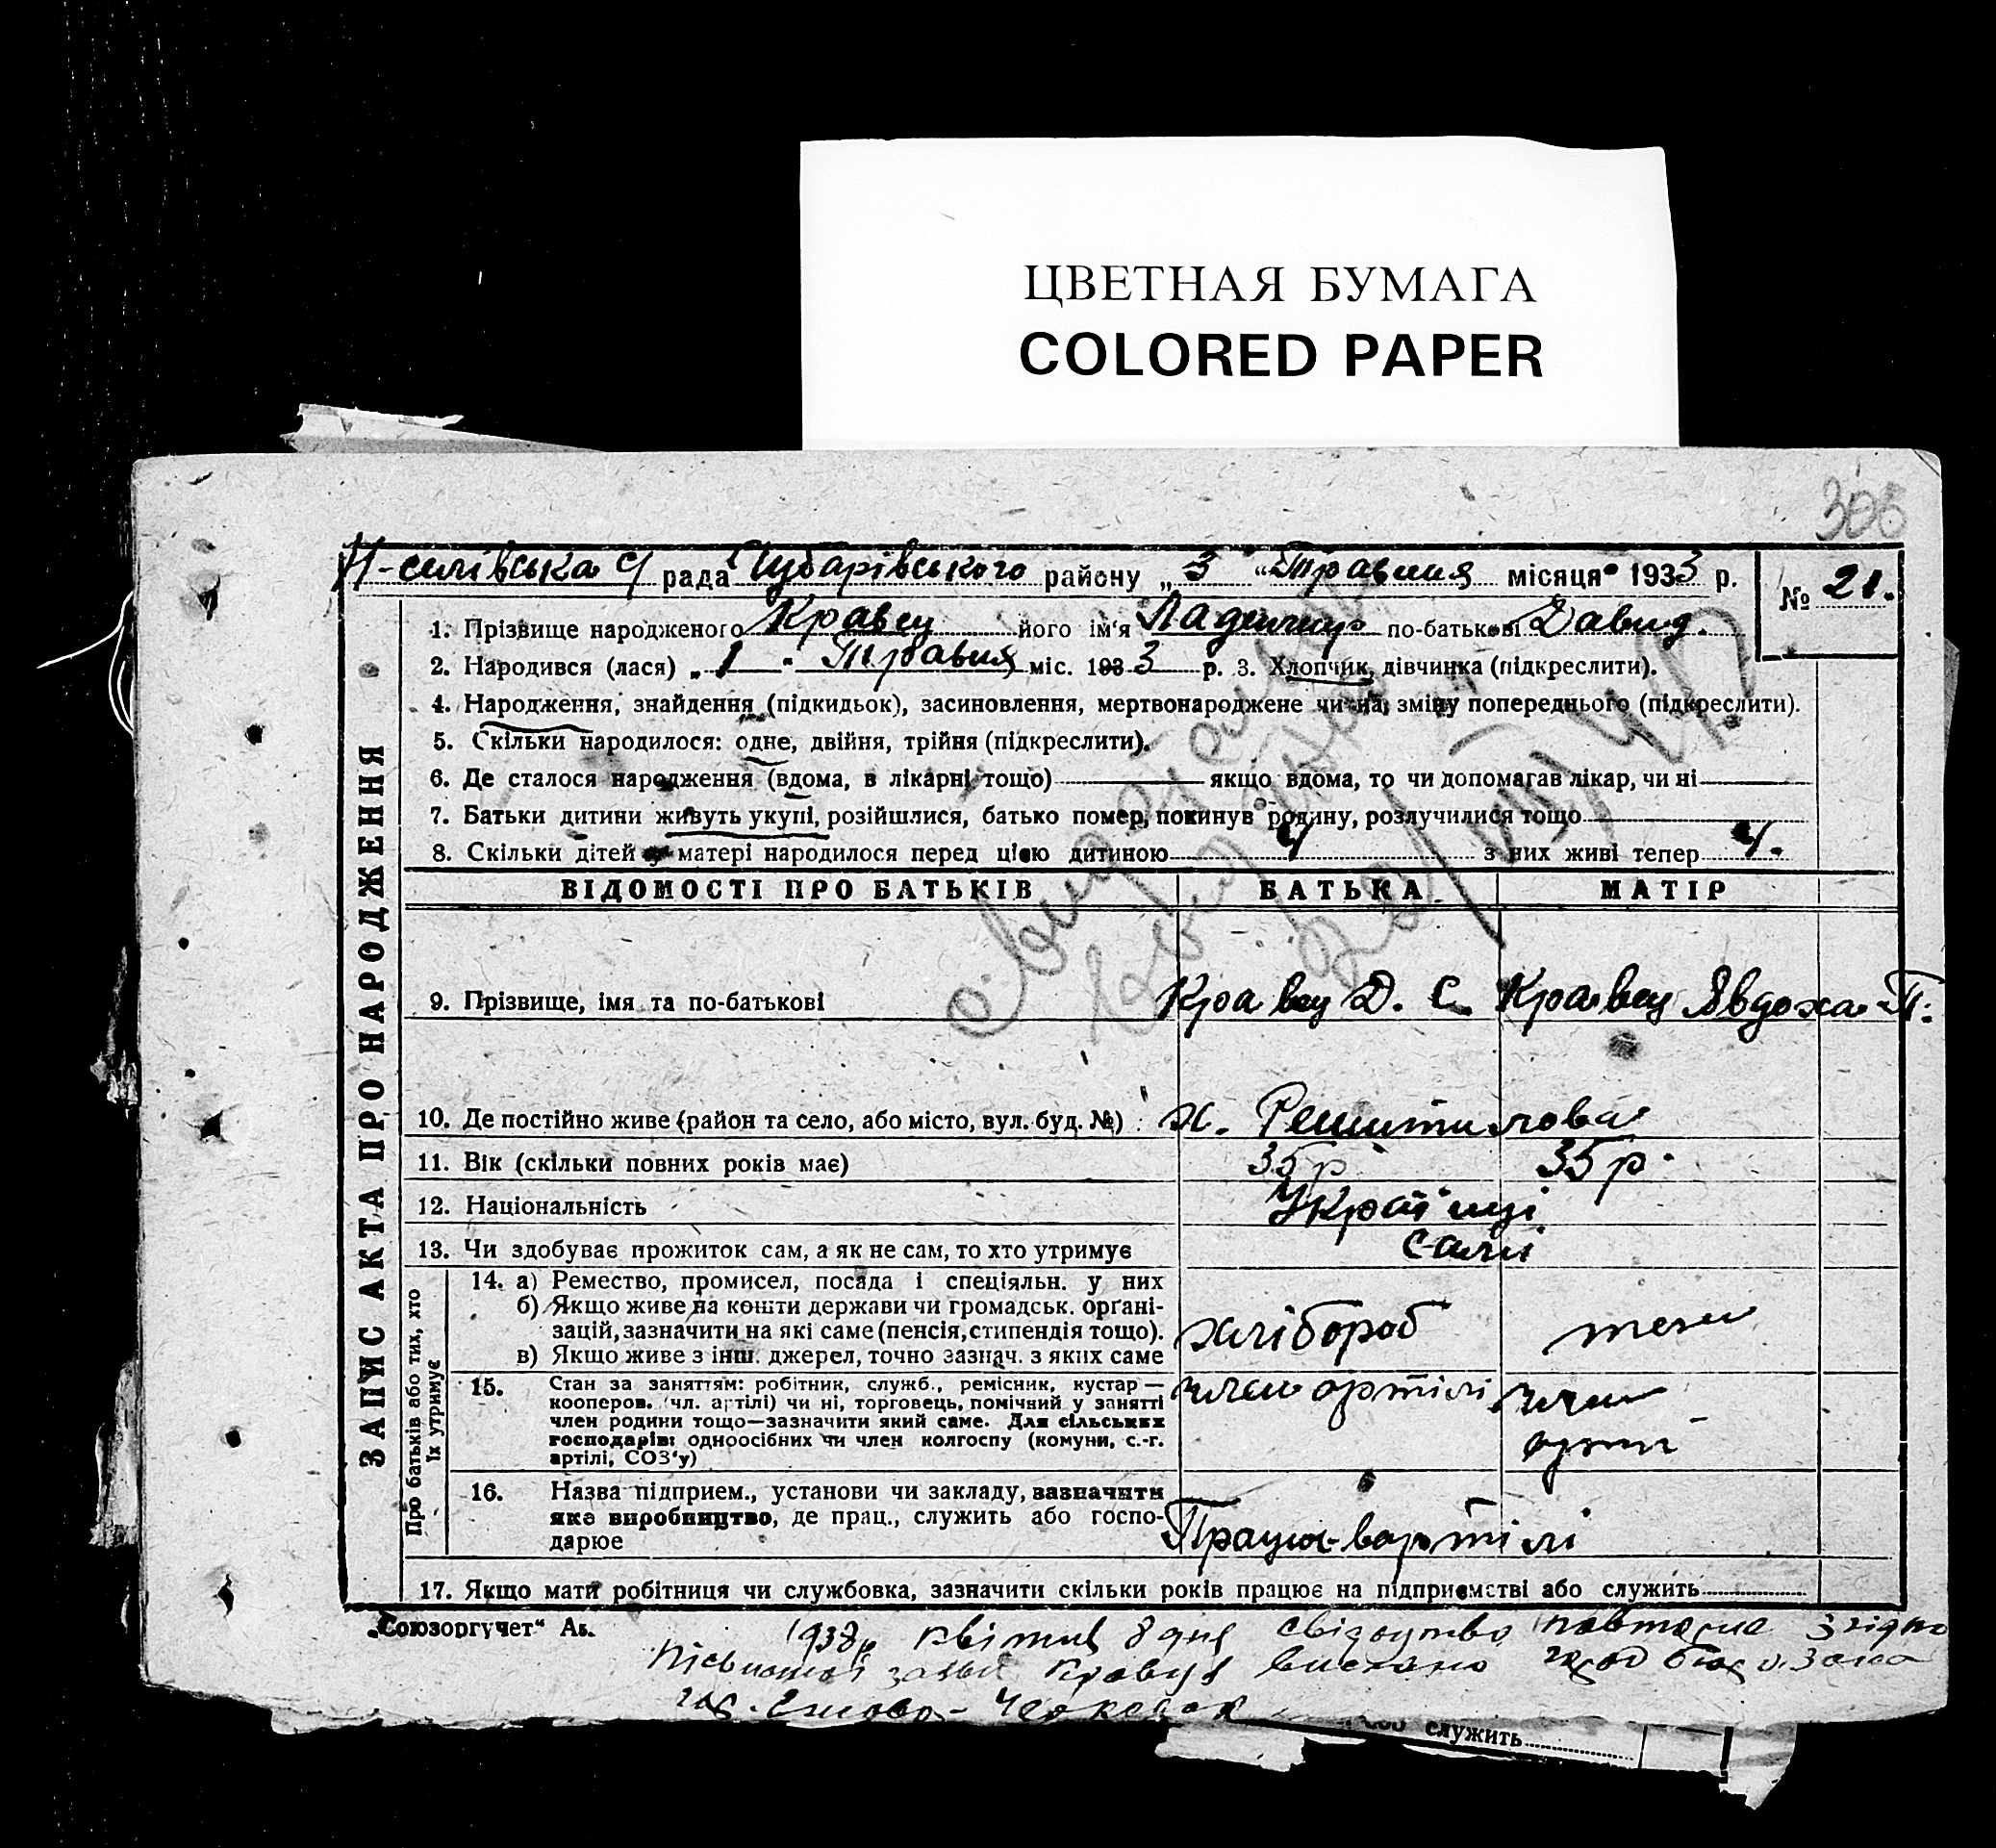 ЦВЕТНАЯ БУМАГА
COLORED PAPER
306
Н-селівська с/ рада Чубарівського району „3“ Травня місяця 1933 р. № 21.
1. Прізвище народженого Кравец його ім'я по-батькові Давид.
2. Народився (лася) „1 - Травня міс. 1933 р. 3. Хлопчик, дівчинка (підкреслити).
4. Народження, знайдення (підкидьок), засиновлення, мертвонароджене чи на зміну попереднього (підкреслити).
5. Скільки народилося: одне, двійня, трійня (підкреслити).
6. Де сталося народження (вдома, в лікарні тощо) якщо вдома, то чи допомагав лікар, чи ні
7. Батьки дитини живуть укупі, розійшлися, батько помер, покинув родину, розлучилися тощо
8. Скільки дітей у матері народилося перед цією дитиною 4 з них живі тепер 4.
ВІДОМОСТІ ПРО БАТЬКІВ БАТЬКА МАТІР
9. Прізвище, імя та по-батькові Кравец Д. С. Кравец Явдоха П.
10. Де постійно живе (район та село, або місто, вул. буд. №) х.
11. Вік (скільки повних років має) 35 р 35 р.
12. Національність Українці
13. Чи здобуває прожиток сам, а як не сам, то хто утримує самі
14. а) Ремество, промисел, посада і спеціяльн. у них
б) Якщо живе на кошти держави чи громадськ. органі-
зацій, зазначити на які саме (пенсія, стипендія тощо). хлібороб теж
в) Якщо живе з інш. джерел, точно зазнач. з яких саме
15. Стан за заняттям: робітник, служб., ремісник, кустар — член артілі член
кооперов. (чл. артілі) чи ні, торговець, помічний у занятті
член родини тощо—зазначити який саме. Для сільських арт
господарів: одноосібних чи член колгоспу (комуни, с.-г.
артілі, СОЗ'у)
16. Назва підприєм., установи чи закладу, зазначити
яке виробництво, де прац., служить або госпо-
дарює Працює в артілі
17. Якщо мати робітниця чи службовка, зазначити скільки років працює на підприємстві або служить
ЗАПИС АКТА ПРО НАРОДЖЕННЯ
Про батьків або тих, хто
їх утримує
„Союзоргучет“
1938р квітня 8 дня свідоцтво повторне згідно
заяви Кравця
служить